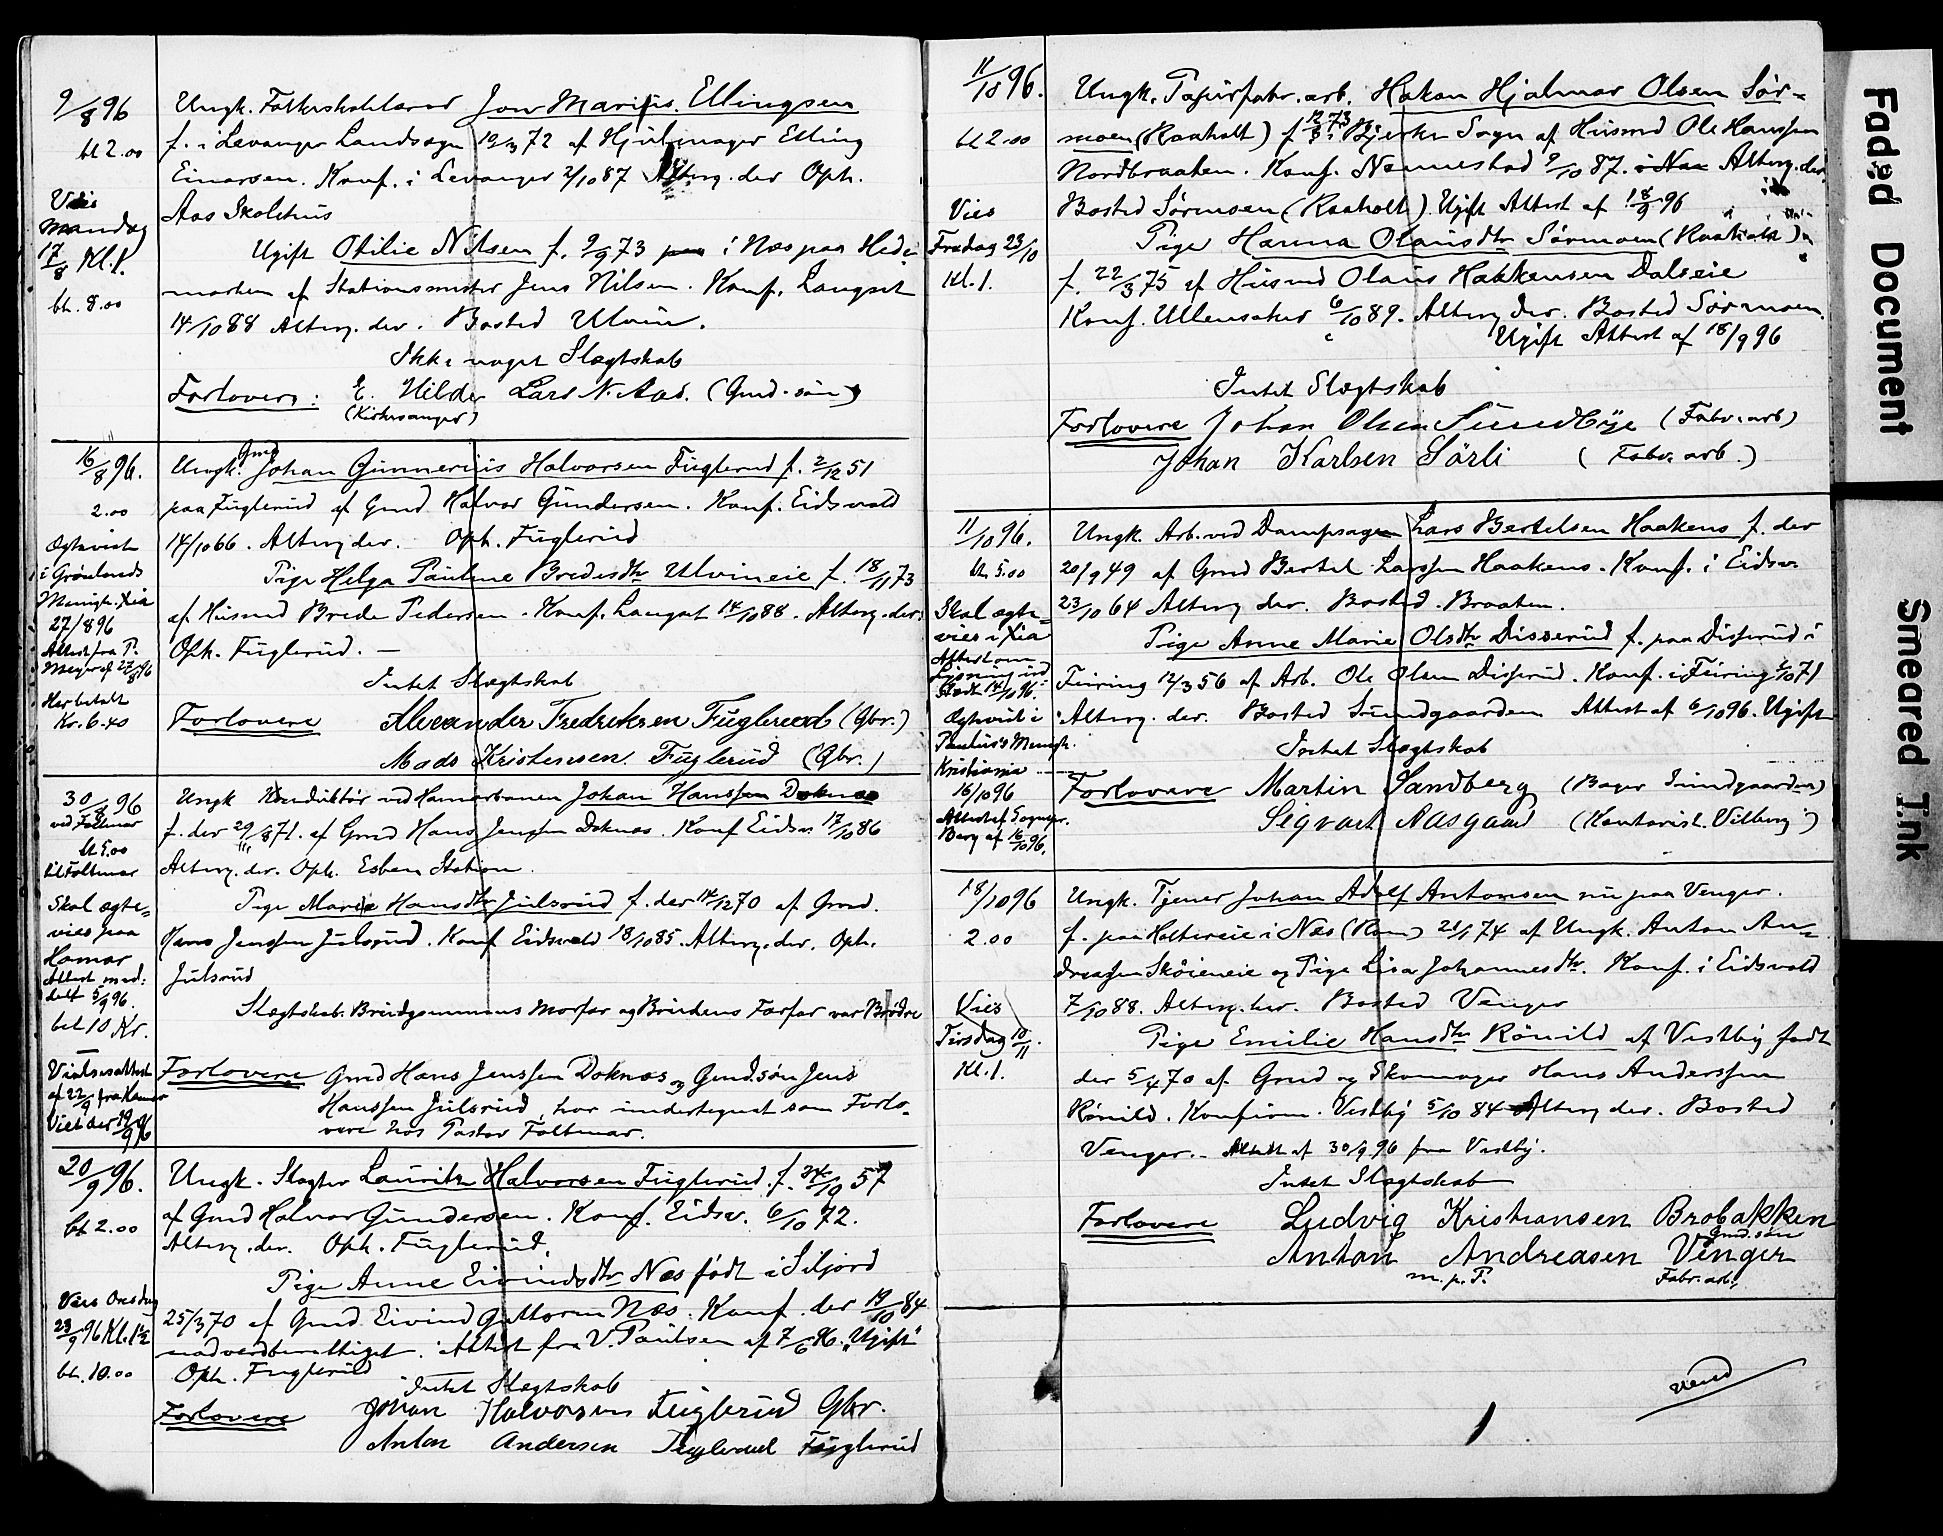 9/8 96
bt 2.00
Vies
Mandag
17/8 Kl. 1.
bt. 8.00
Ungk. Folkeskolelærer Jon Marius Ellingsen
f. i Levanger Landsogn 12/3 72 af Hjulmager Elling
Einarsen. Konf. i Levanger 2/10 87 Alterg. der Oph.
Aas Skolehus
Ugift Otilie Nilsen f. 9/9 73 paa i Næs paa Hede-
marken af Stationsmester Jens Nilsen. Konf. Langset
14/10 88 Alterg. der. Bosted Ulvin.
Ikke noget Slægtskab
Forlovere: E. Hilder Lars N. Aas. (Gmd. søn)
(Kirkesanger)
16/8 96.
2.00
Ægteviet
i Grønlands
Menigh. Xia
27/8 96
Attest fra P.
Meyer af 27/8 96
Her betalt
Kr. 6.40
Ungk. Gmd Johan Gunnerius Halvorsen Fuglerud f. 2/12 51
paa Fuglerud af Gmd Halvor Gundersen. Konf. Eidsvold
14/10 66. Alterg. der. Oph. Fuglerud
Pige Helga Pauline Bredesdtr Ulvineie f. 18/11 73
af Husmd Brede Pedersen. Konf. Langset 14/10 88. Alterg. der.
Oph. Fuglerud. —
Intet Slægtskab
Forlovere Alexander Fredriksen Fuglerud (Gbr.)
Mads Kristensen Fuglerud (Gbr.)
30/8 96
ved Foltmar
bt 5.00
til Foltmar
Skal ægte=
vies paa
Hamar
Attest med-
delt 5/9 96.
bet 10 Kr.
Vielsesattest
af 22/9 fra Hamar
Viet der 19/9 96
Ungk Konduktør ved Hamarbanen Johan Hanssen Doknæs
f. der 29/8 71. af Gmd Hans Jenssen Doknæs. Konf Eidsv. 17/10 86
Alterg. der. Oph. Espen Station.
Pige Marie Hansdtr Julsrud f. der 14/12 70 af Gmd.
Hans Jenssen Julsrud. Konf Eidsvold 18/10 85 Alterg. der. Oph.
Julsrud
Slægtskab. Brudgommens Morfar og Brudens Farfar var Brødre
Forlovere Gmd Hans Jenssen Doknæs og Gmd. søn Jens
Hanssen Julsrud, har undertegnet som Forlo-
vere hos Pastor Foltmar.
20/9 96.
bt 2.00
Vies Onsdag
23/9 96 Kl. 1 1/2
bt. 10.00
Ungk. Slagter Lauritz Halvorsen Fuglerud. f. 24/10 57
af Gmd Halvor Gundersen. Konf. Eidsv. 6/10 72.
Alterg. der. Oph. Fuglerud.
Pige Anne Eivindsdtr Næs født i Siljord
25/3 70 af Gmd. Eivind Guttorm Næs. Konf. der 19/10 84
nadverdberettiget. Attest fra V. Paulsen af 7/6 96. "Ugift"
Oph. Fuglerud
Intet Slægtskab
Forlovere Johan Halvorsen Fuglerud Gbr.
Anton Andersen Fuglerud Fuglerud
11/10 96.
bt 2.00
Vies
Fredag 23/10
Kl. 1.
Ungk. Papirfabr. arb. Hakon Hjalmar Olsen Sør-
moen (Raaholt) f. 12/3 73 i Bjerke Sogn af Husmd Ole Hanssen
Nordbraaten. Konf. Nannestad 9/10 87. i Nan Alterg. der.
Bosted Sørmoen (Raaholt). Ugift Attest af 18/9 96
Pige Hanna Olausdtr Sørmoen (Raaholt)
f. 22/3 75 af Husmd Olaus Haakensen Dalseie
Konf. Ullensaker 6/10 89. Alterg. der. Bosted Sørmoen.
Ugift Attest af 18/9 96
Intet Slægtskab
Forlovere Johan Olsen Sundbye (Fabr. arb)
Johan Karlsen Sörli (Fabr. arb.)
11/10 96.
bt. 5.00
Skal ægte-
vies i Xia
Attest om
Lysning ud-
stedt 14/10 96.
Ægteviet i
Paulus's Menigh.
Kristiania
16/10 96
Attest af Sognepr.
Berg af 16/10 96.
Ungk. Arb. ved Dampsagen Lars Bertelsen Haakens f. der
20/9 49 af Gmd Bertel Larssen Haakens. Konf. i Eidsv.
23/10 64 Alterg der. Bosted. Braaten.
Pige Anne Marie Olsdtr Disserud f. paa Disserud i
Feiring 12/3 56 af Arb. Ole Olsen Disserud. Konf. i Feiring 1/10 71
Alterg. der. Bosted Sundgaarden Attest af 6/10 96. Ugift
Intet Slægtskab
Forlovere Martin Sandberg (Bager Sundgaarden)
Sigvart Aasgaard (Kontorist. Vilberg)
18/10 96
2.00
Vies
Tirsdag 10/11.
Kl. 1.
Ungk. Tjener Johan Adolf Antonsen nu paa Venger.
f. paa Haltereie i Næs (Rom) 21/1 74 af Ungk. Anton An-
dreassen Skøieneie og Pige Lisa Johannesdtr. Konf. i Eidsvold
7/10 88. Alterg. her. Bosted Venger
Pige Emilie Hansdtr Rönild af Vestby født
der 5/4 70 af Gmd og Skomager Hans Anderssen
Rönild. Konfirm. Vestby 5/10 84 Alterg der. Bosted
Venger. – Attest af 30/9 96 fra Vestby.
Intet Slægtskab
Forlovere Ludvig Kristiansen Brobakken
Gmd. søn
Anton Andreasen Venger
m. p. P. Fabr. arb.
vend
1
Faded Document
Smeared Ink